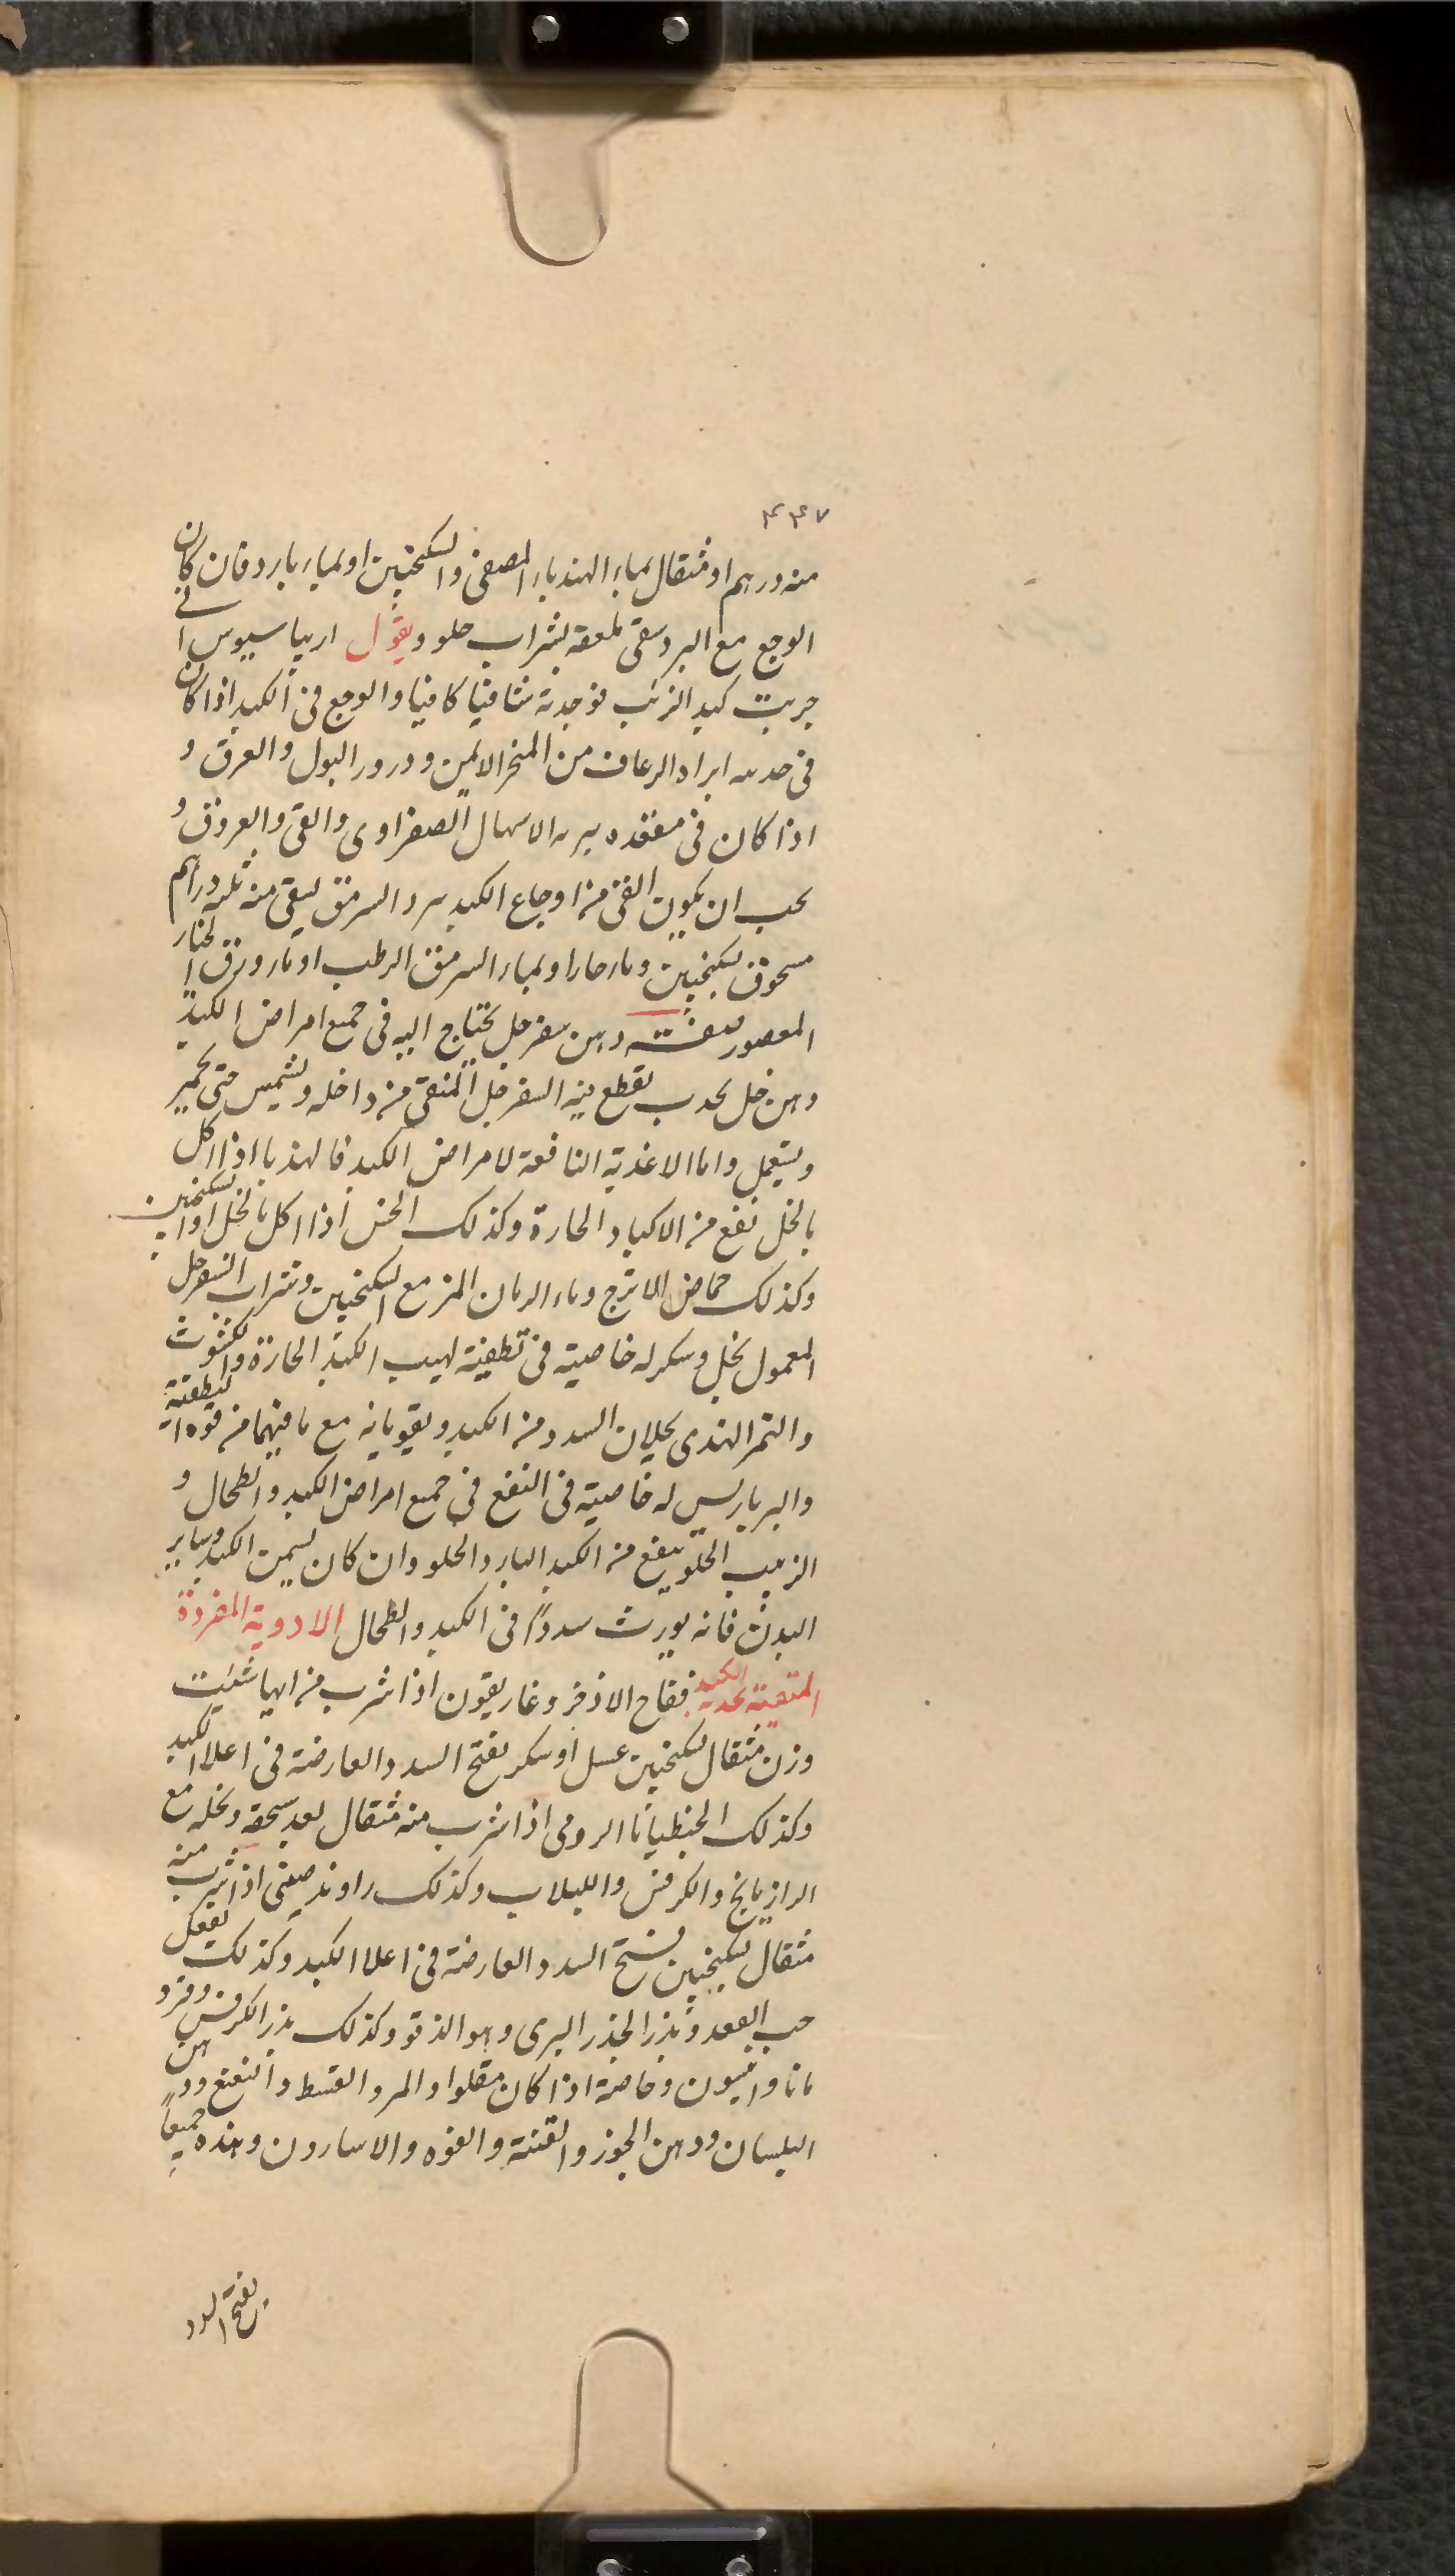 ۴۴۷
منه درهم او مثقال بماء الهندباء المصفى والسكنجبين او بماء بارد فان كان
الوجع مع البرد سقى ملعقة بشراب حلو ويقول اريباسيوس انى
جربت كبد الذئب فوجدته شافيا كافيا والوجع فى الكبد اذا كان
فى حدبته ابراه الرعاف من المنخر الايمن ودرور البول والعرق و
اذا كان فى مقعده الاسهال الصفراوى والقى والعروق و
يجب ان يكون القى من اوجاع الكبد السرمق يسقى منه ثلثة دراهم
مسحوق بسكنجبين وماء حار او بماء السرمق الرطب او ماء ورق الخيار
المعصور صفة دهن سفرجل يحتاج اليه فى جميع امراض الكبد
دهن خل يقطع فيه السفرجل المنقى من داخله ويشمس حتى يحمير
ويستعمل واما الاغذية النافعة لامراض الكبد فالهندبا اذا اكل
بالخل نفع من الاكباد الحارة وكذلك الخس اذا اكل بالخل او السكنجبين
وكذلك حماض الاترج وماء الرمان المز مع السكنجبين وشراب السفرجل
المعمول بخل وسكر له خاصية فى تطفية لهيب الكبد الحارة والكشوث
والتمر الهندى يحلان السدد من الكبد ويقويانه مع ما فيهما من قوة التطفية
والبرباريس له خاصية فى النفع فى جميع امراض الكبد والطحال و
الزبيب الحلو ينفع من الكبد البارد والحلو وان كان يسمن الكبد وساير
البدن فانه يورث سددا فى الكبد والطحال الادوية المفردة
المنقية الكبد فقاح الاذخر وغاريقون اذا شرب من ايها شئت
وزن مثقال بسكنجبين عسل او سكر يفتح السدد العارضة فى اعلا الكبد
وكذلك الجنطيانا الرومى اذا شرب منه مثقال بعد سحقه ونخله مع
الرازيانج والكرفس واللبلاب وكذلك راوند صينى اذا شرب منه
مثقال بسكنجبين فتح السدد العارضة فى اعلا الكبد وكذلك يفعل
حب الفقد وبذر الجذر البرى وهو الذقو وكذلك بذر الكرفس وفرد
مانا وانيسون وخاصة اذا كان مقلوا والمر والقسط والنعنع ودهن
البلسان ودهن الجوز والقنة والفوه والاسارون وهذه جميعاً
يفتح السدد